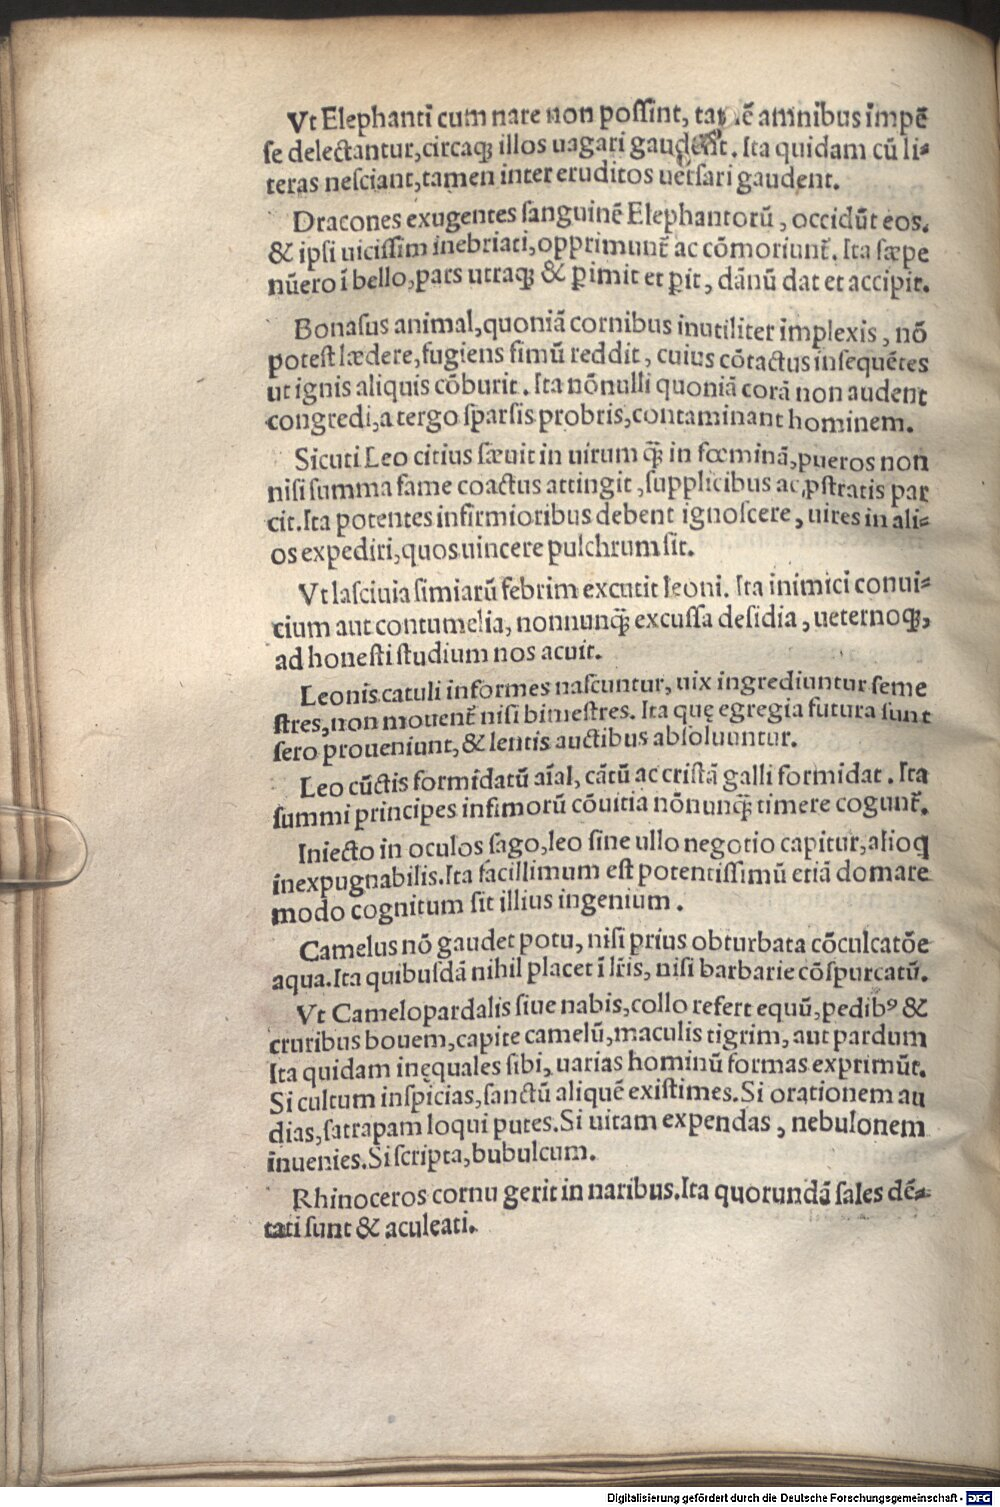 Vt Elephanti cum nare non poſſint, tamē amnibus impē
ſe delectantur, circaq; illos uagari gaudent. Ita quidam cū li-
teras neſciant, tamen inter eruditos uerſari gaudent.
Dracones exugentes ſanguinē Elephantorū, occidūt eos.
& ipſi uiciſſim inebriati, opprimunt̃ ac cōmoriunt̃. Ita ſæpe
nūero ī bello, pars utraq; & ꝑimit et ꝑit, dānū dat et accipit.
Bonaſus animal, quoniā cornibus inutiliter implexis, nō
poteſt lædere, fugiens fimū reddit, cuius cōtactus inſequētes
ut ignis aliquis cōburit. Ita nōnulli quoniā corā non audent
congredi, a tergo ſparſis probris, contaminant hominem.
Sicuti Leo citius ſæuit in uirum q̃; in fœminā, pueros non
niſi ſumma fame coactus attingit, ſupplicibus ac ꝓſtratis par
cit. Ita potentes infirmioribus debent ignoſcere, uires in ali-
os expediri, quos uincere pulchrum ſit.
Vt laſciuia ſimiarū febrim excutit leoni. Ita inimici conui-
cium aut contumelia, nonnunq̃; excuſſa deſidia, ueternoq;,
ad honeſti ſtudium nos acuit.
Leonis catuli informes naſcuntur, uix ingrediuntur ſeme
ſtres, non mouent̃ niſi bimeſtres. Ita quę egregia futura ſunt
ſero proueniunt, & lentis auctibus abſoluuntur.
Leo cūctis formidatū aīal, cātū ac criſtā galli formidat. Ita
ſummi principes infimorū cōuitia nōnunq̃; timere cogunt̃.
Iniecto in oculos ſago, leo ſine ullo negotio capitur, alioq
inexpugnabilis. Ita facillimum eſt potentiſſimū etiā domare
modo cognitum ſit illius ingenium.
Camelus nō gaudet potu, niſi prius obturbata cōculcatōe
aqua. Ita quibuſdā nihil placet ī lr̃is, niſi barbarie cōſpurcatū.
Vt Camelopardalis ſiue nabis, collo refert equū, pedibꝰ &
cruribus bouem, capite camelū, maculis tigrim, aut pardum
Ita quidam inęquales ſibi, uarias hominū formas exprimūt.
Si cultum inſpicias, ſanctū aliquē exiſtimes. Si orationem au
dias, ſatrapam loqui putes. Si uitam expendas, nebulonem
inuenies. Si ſcripta, bubulcum.
Rhinoceros cornu gerit in naribus. Ita quorundā ſales dē-
tati ſunt & aculeati.
Digitalisierung gefördert durch die Deutsche Forschungsgemeinschaft - DFG